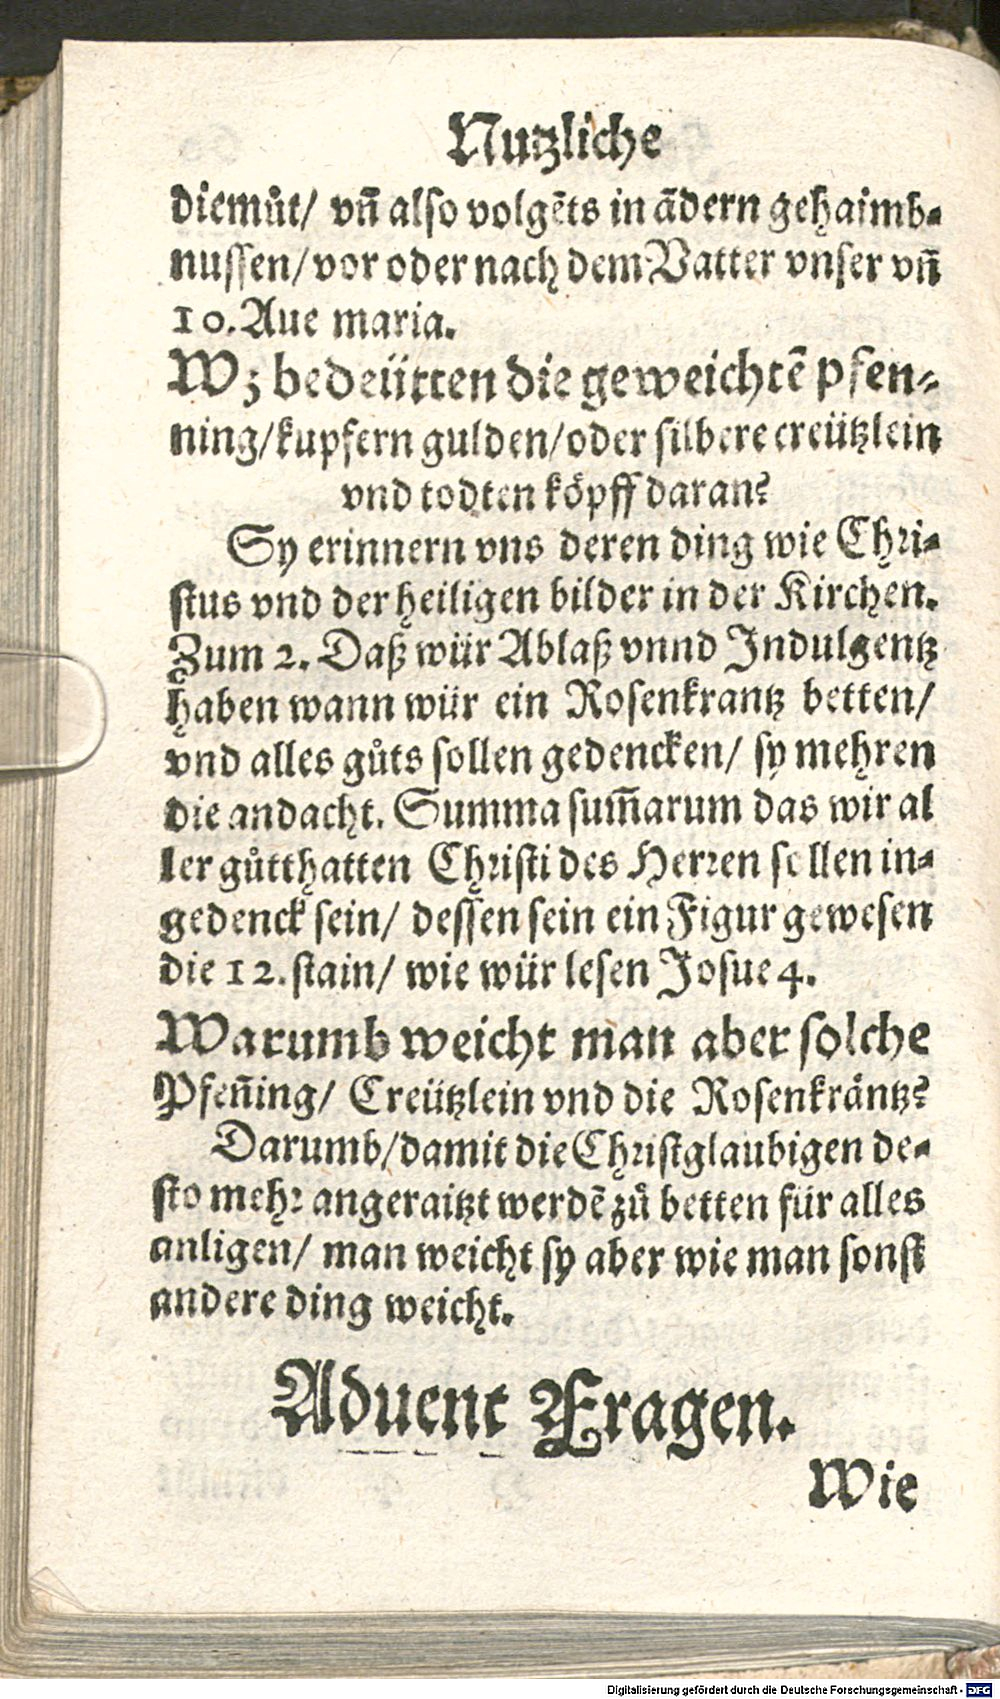 Nutzliche
diemůt/ vñ also volgēts in ādern gehaimb-
nussen/ vor oder nach dem Vatter vnser vñ
10. Aue maria.
Wz bedeütten die geweichtē pfen-
ning/ kupfern gulden/ oder silbere creützlein
vnd todten köpff daran?
Sy erinnern vns deren ding wie Chri-
stus vnd der heiligen bilder in der Kirchen.
Zum 2. Daß wür Ablaß vnnd Indulgentz
haben wann wür ein Rosenkrantz betten/
vnd alles gůts sollen gedencken/ sy mehren
die andacht. Summa sum̄arum das wir al
ler gůtthatten Christi des Herren sollen in-
gedenck sein/ dessen sein ein Figur gewesen
die 12. stain/ wie wür lesen Josue 4.
Warumb weicht man aber solche
Pfen̄ing/ Creützlein vnd die Rosenkräntz?
Darumb/ damit die Christglaubigen de-
sto mehr angeraitzt werdē zů betten für alles
anligen/ man weicht sy aber wie man sonst
andere ding weicht.
Aduent Fragen.
Wie
Digitalisierung gefördert durch die Deutsche Forschungsgemeinschaft - DFG